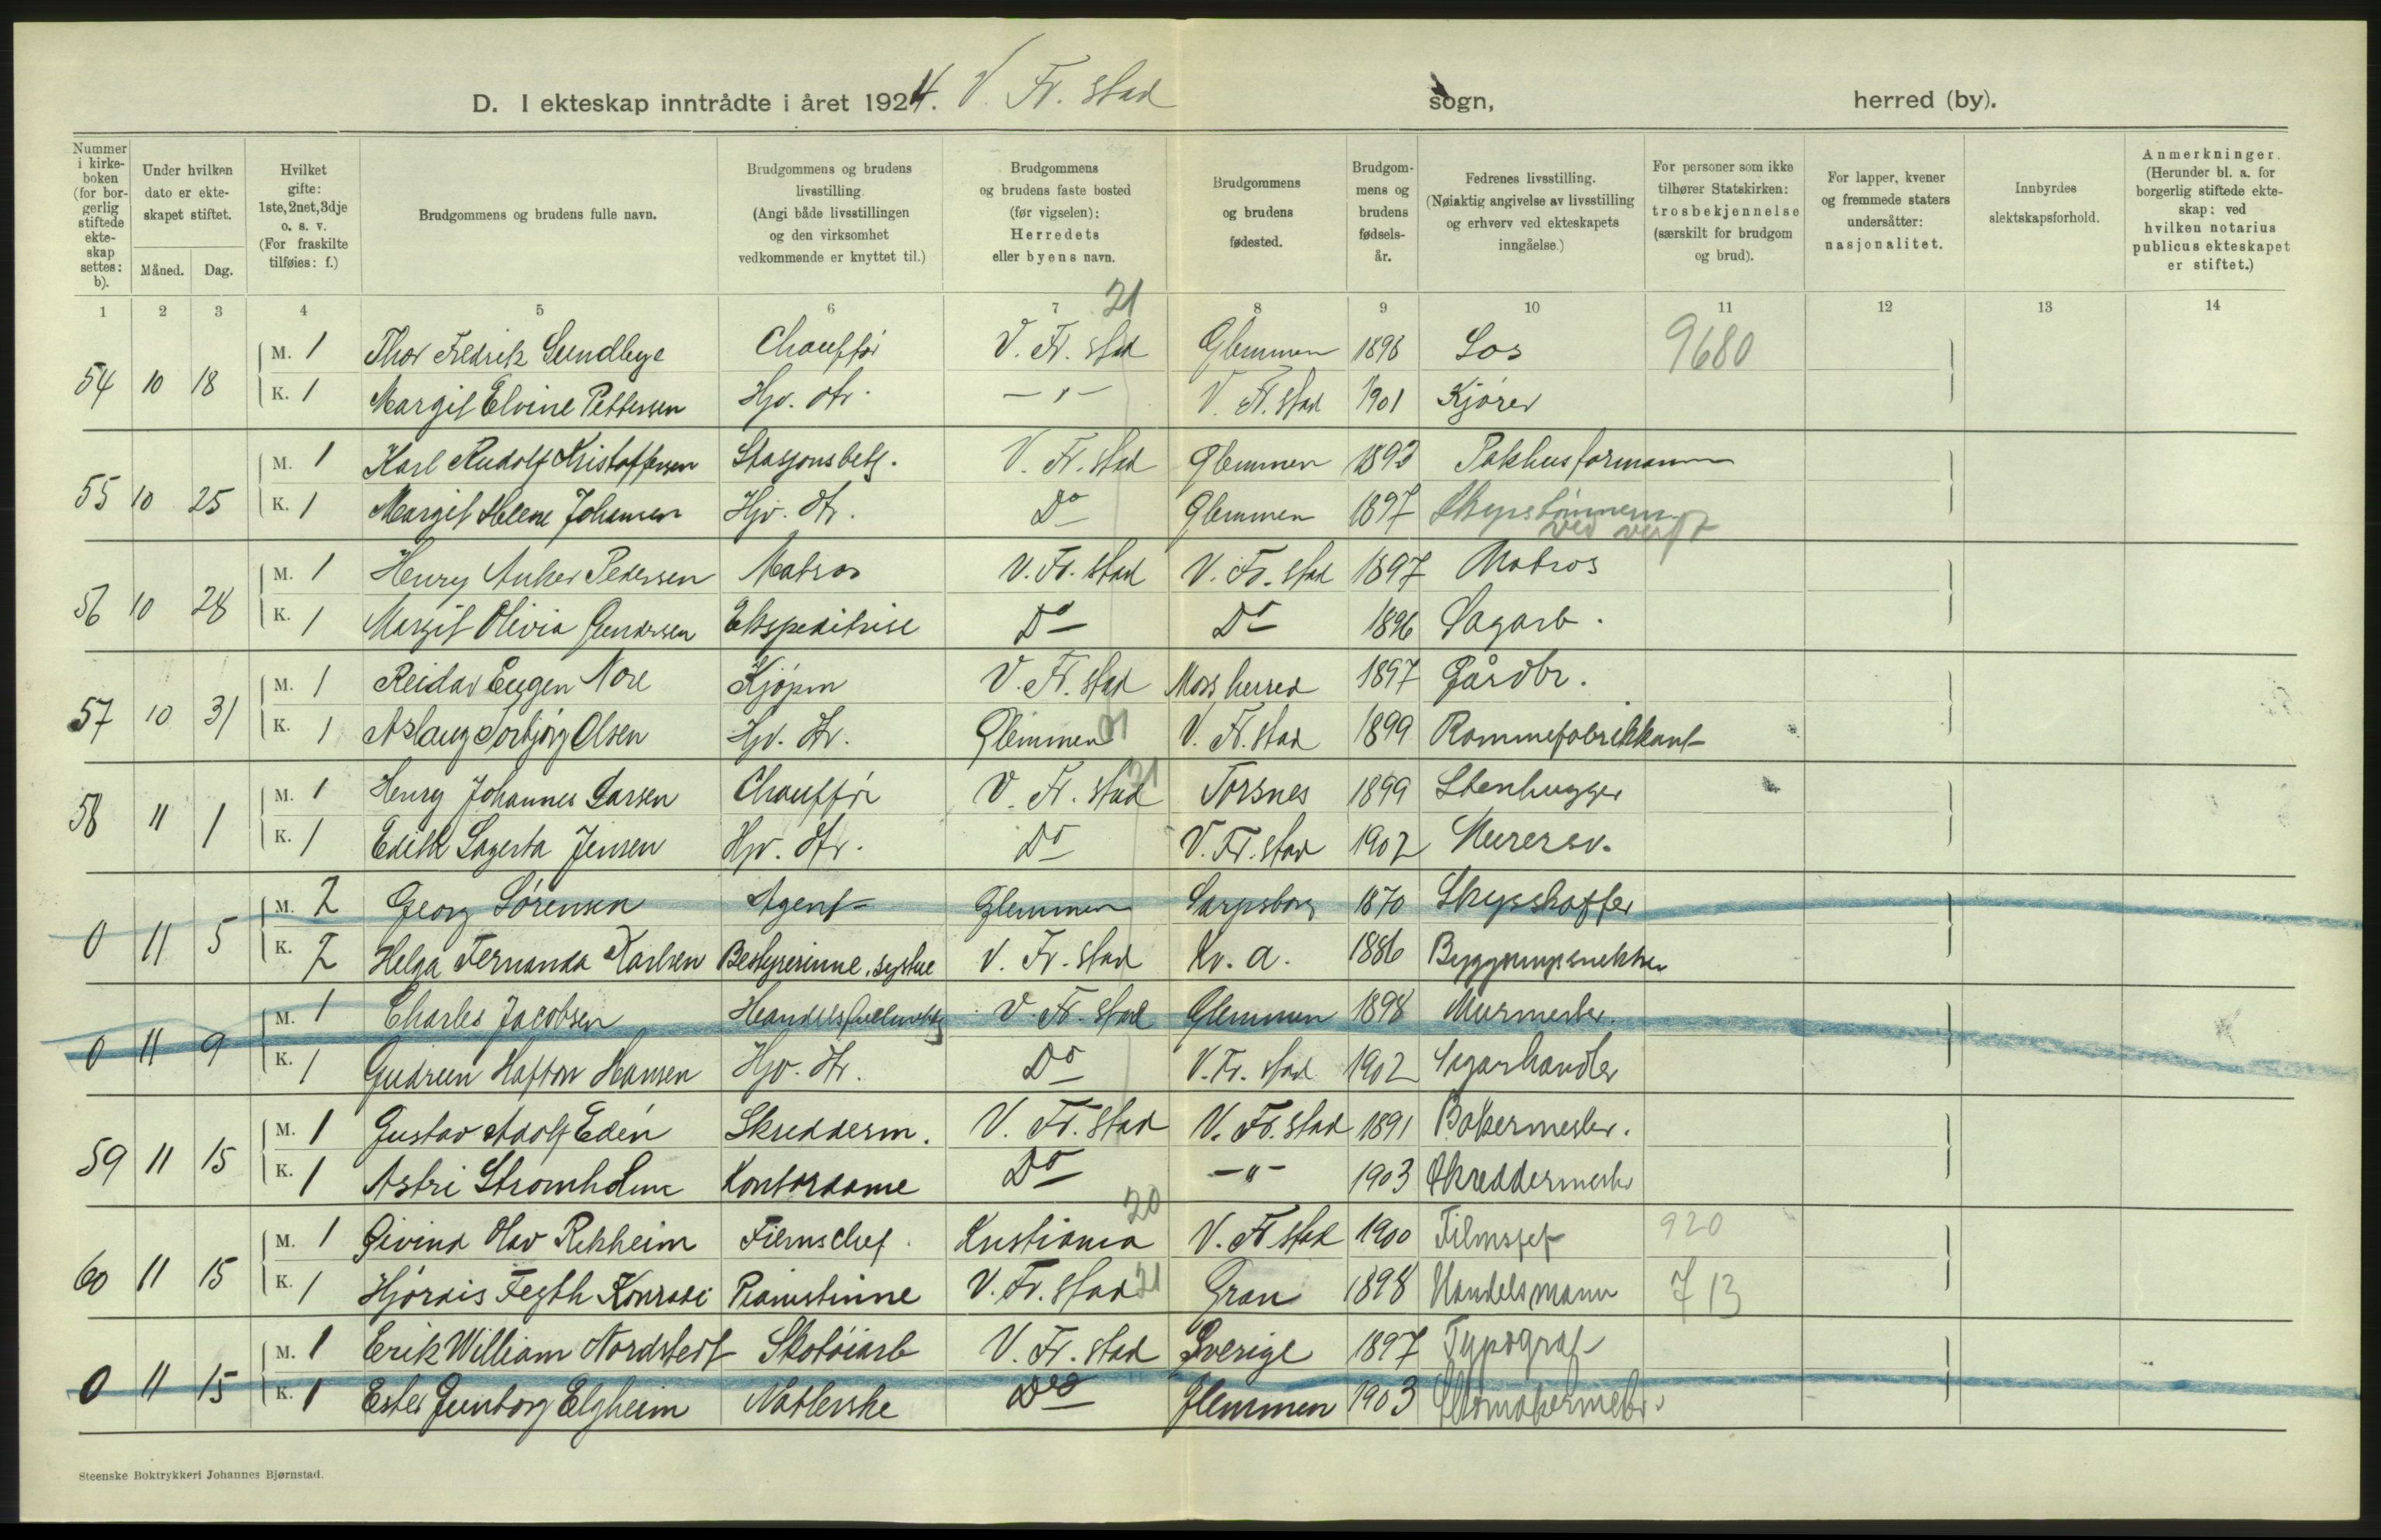 D. I ekteskap inntrådte i året 1924. V. Fr. stad sogn, herred (by).
Nummer i kirke-boken (for bor-gerlig stiftede ekte-skap settes: b).
Under hvilken dato er ekte-skapet stiftet.
Måned. Dag.
Hvilket gifte: 1ste, 2net, 3dje o. s. v. (For fraskilte tilføies: f.)
Brudgommens og brudens fulle navn.
Brudgommens og brudens livsstilling. (Angi både livsstillingen og den virksomhet vedkommende er knyttet til.)
Brudgommens og brudens faste bosted (før vigselen): Herredets eller byens navn.
Brudgommens og brudens fødested.
Brudgom-mens og brudens fødsels-år.
Fedrenes livsstilling. (Nøiaktig angivelse av livsstilling og erhverv ved ekteskapets inngåelse.)
For personer som ikke tilhører Statskirken: trosbekjennelse (særskilt for brudgom og brud).
For lapper, kvener og fremmede staters undersåtter: nasjonalitet.
Innbyrdes slektskapsforhold.
Anmerkninger. (Herunder bl. a. for borgerlig stiftede ekte-skap: ved hvilken notarius publicus ekteskapet er stiftet.)
1 2 3 4 5 6 7 21 8 9 10 11 12 13 14
M. 1 Thor Fredrik Lundbye Chauffør V. Fr. stad Glemmen 1898 Los 9680
54 10 18
K. 1 Margit Elvine Pettersen Hjv. dtr. — " — V. Fr. stad 1901 Kjører
M. 1 Karl Rudolf Kristoffersen Stasjonsbetj. V. Fr. stad Glemmen 1893 Pakhusformann
55 10 25
K. 1 Margit Helene Johansen Hjv. dtr. Do Glemmen 1897 Skipstømmerm. ved verft
M. 1 Henry Anker Pedersen Matros V. Fr. stad V. Fr. stad 1897 Matros
56 10 28
K. 1 Margit Olivia Gundersen Ekspeditrise Do Do 1896 Sagarb.
M. 1 Reidar Eugen Nore Kjøpm V. Fr. stad Moss herred 1897 Gårdbr.
57 10 31
K. 1 Aslaug Torbjørg Olsen Hjv. dtr. Glemmen 01 V. Fr. stad 1899 Rammefabrikkant
M. 1 Henry Johannes Larsen Chauffør V. Fr. stad 21 Torsnes 1899 Stenhugger
58 11 1
K. 1 Edith Lagerta Jensen Hjv. dtr. Do V. Fr. stad 1902 Murersv.
M. 2 Georg Sørensen Agent Glemmen Sarpsborg 1870 Skysskaffer
0 11 5
K. 2 Helga Fernanda Karlsen Bestyrerinne, systue V. Fr. stad Kr. a. 1886 Bygningssnekker
M. 1 Charles Jacobsen Handelsfullmektig V. Fr. stad Glemmen 1898 Murmester.
0 11 9
K. 1 Gudrun Hafton Hansen Hjv. dtr. Do V. Fr. stad 1902 Sigarhandler
M. 1 Gustav Adolf Edén Skredderm. V. Fr. stad V. Fr. stad 1891 Bakermester.
59 11 15
K. 1 Astri Strømholm Kontordame Do — " — 1903 Skreddermester
M. 1 Eivind Olav Rekheim Filmschef. Kristiania 20 V. Fr. stad 1900 Filmsjef 920
60 11 15
K. 1 Hjørdis Fegth Konradi Pianistinne V. Fr. stad 21 Gran 1898 Handelsmann 713
M. 1 Erik William Nordstedt Skotøiarb V. Fr. stad Sverige 1897 Typograf
0 11 15
K. 1 Ester Gunborg Elgheim Nåtlerske Do Glemmen 1903 Skomakermester
Steenske Boktrykkeri Johannes Bjørnstad.